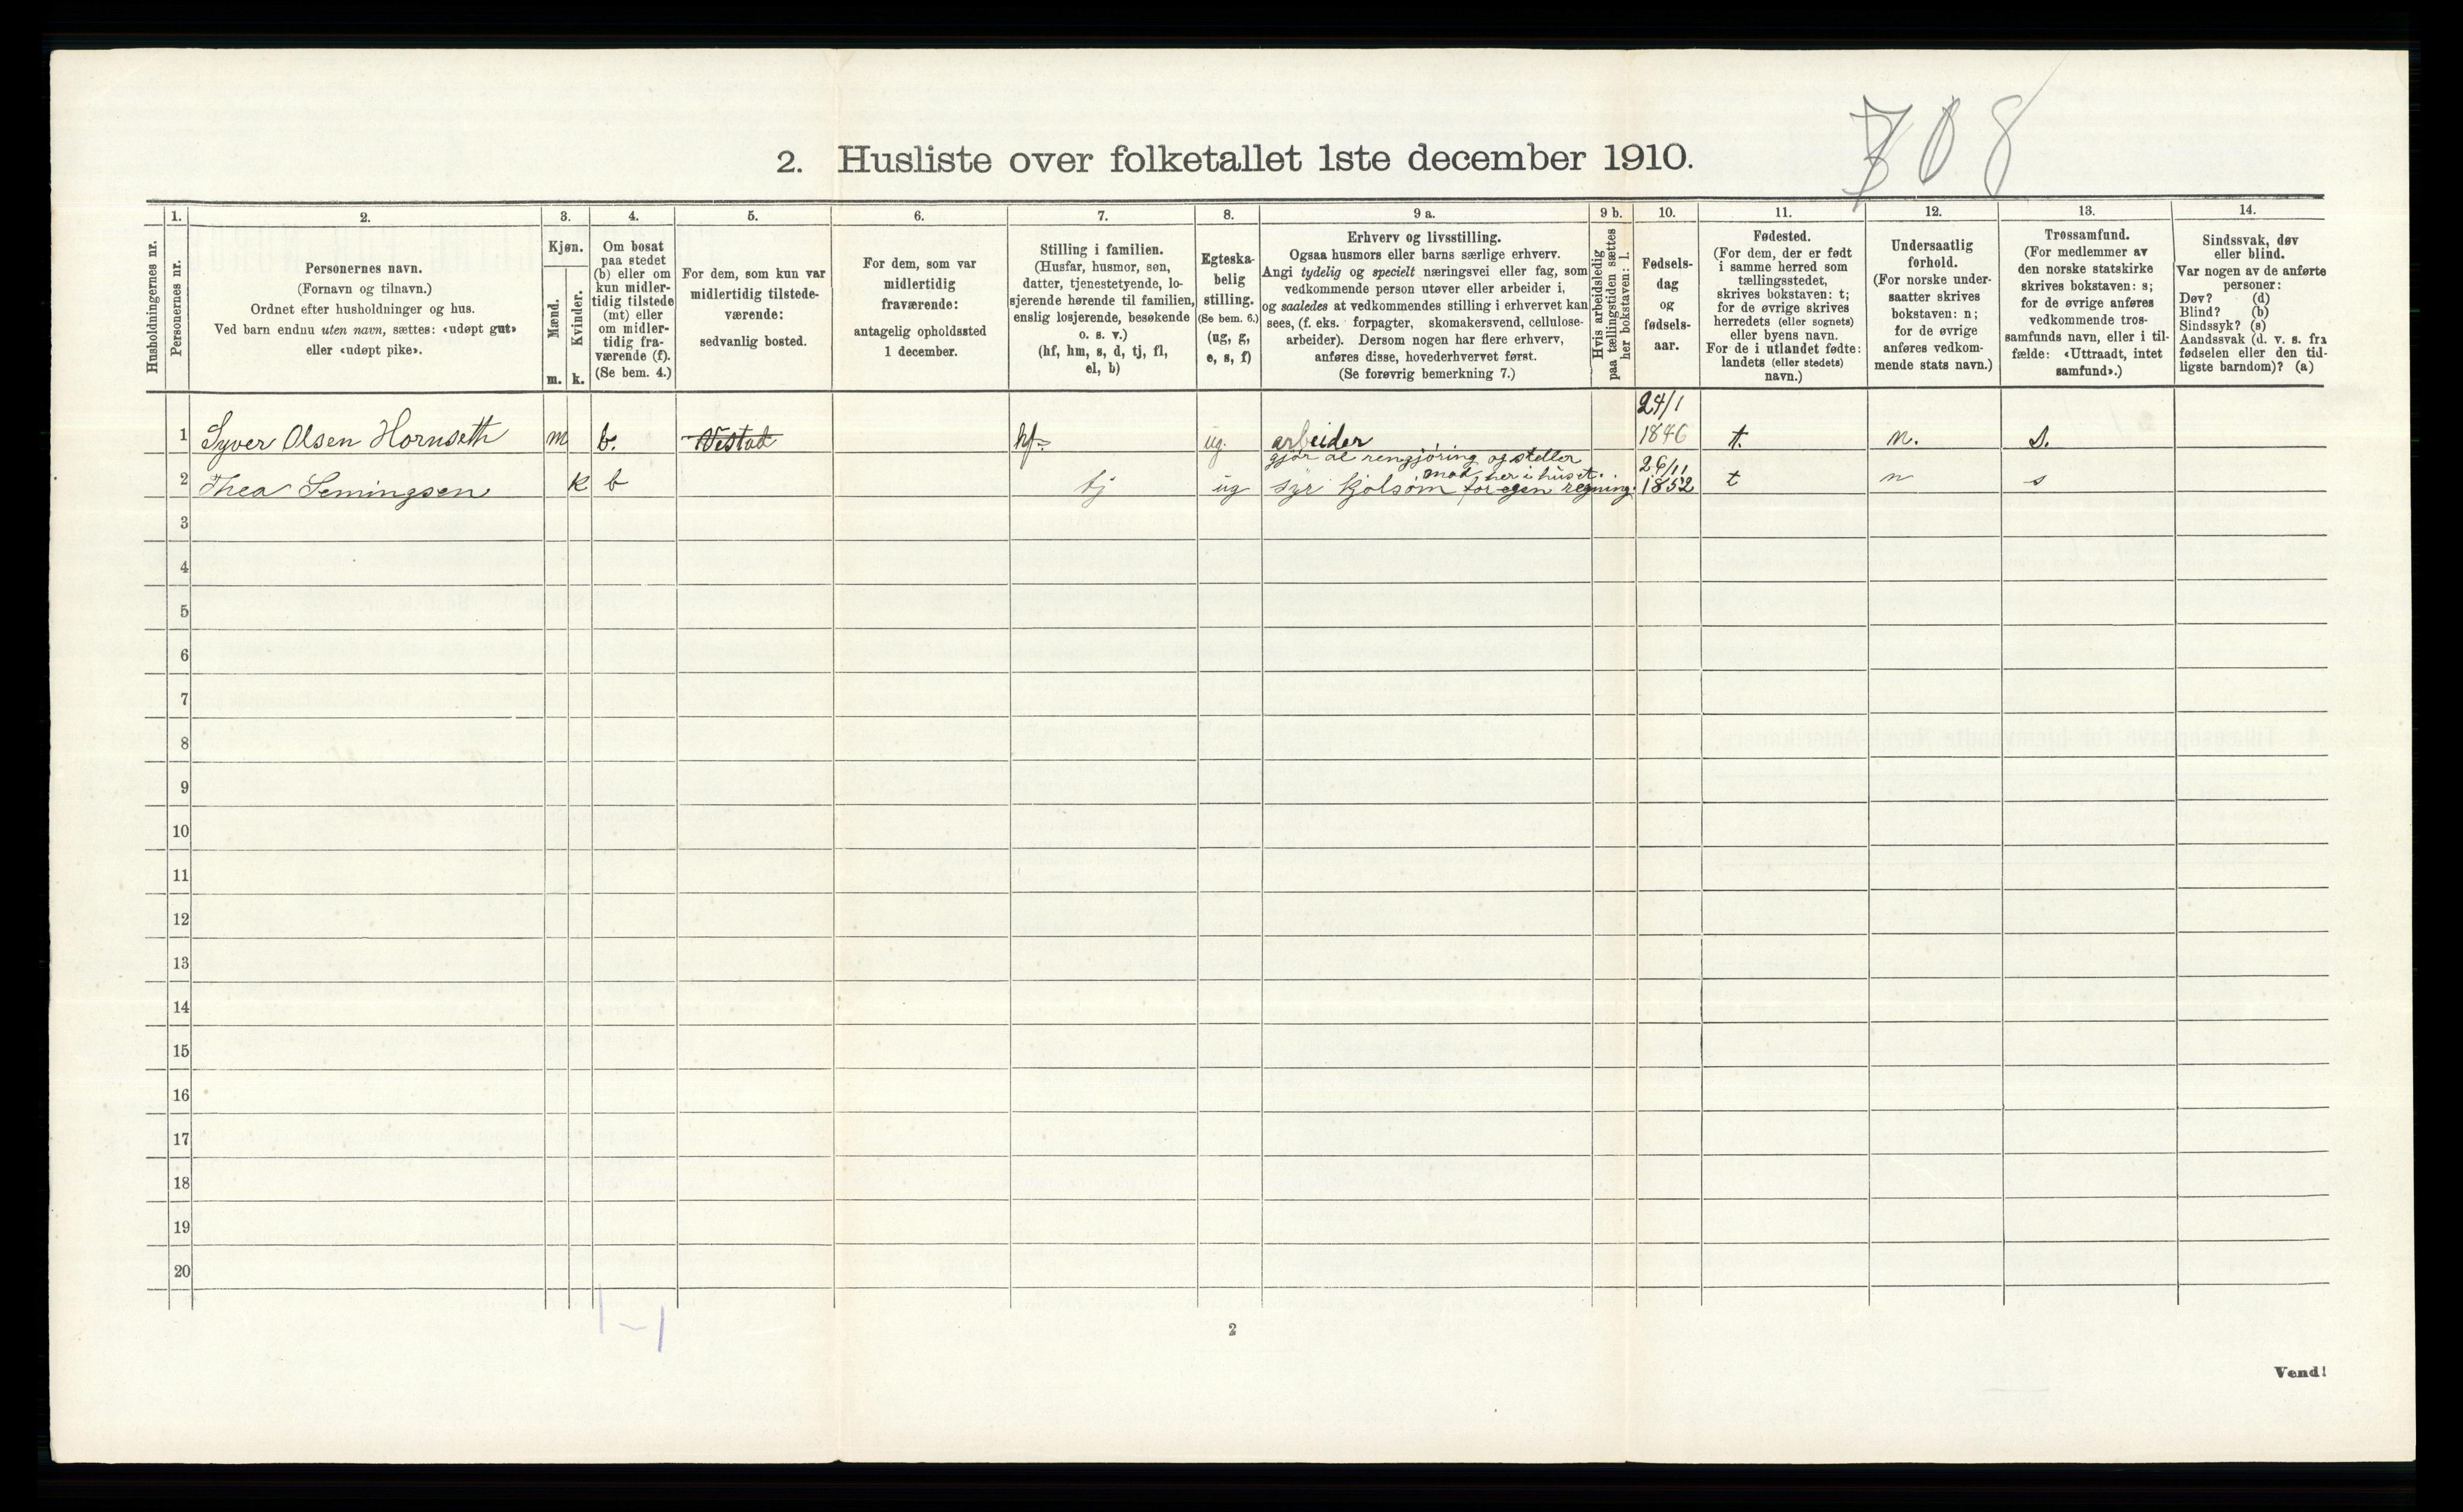 708
2. Husliste over folketallet 1ste december 1910.
Husholdningernes nr.
1.
Personernes nr.
2.
Personernes navn.
(Fornavn og tilnavn.)
Ordnet efter husholdninger og hus.
Ved barn endnu uten navn, sættes: «udøpt gut»
eller «udøpt pike».
3.
Kjøn.
Mænd.
m.
Kvinder.
k.
4.
Om bosat
paa stedet
(b) eller om
kun midler-
tidig tilstede
(mt) eller
om midler-
tidig fra-
værende (f).
(Se bem. 4.)
5.
For dem, som kun var
midlertidig tilstede-
værende:
sedvanlig bosted.
6.
For dem, som var
midlertidig
fraværende:
antagelig opholdssted
1 december.
7.
Stilling i familien.
(Husfar, husmor, søn,
datter, tjenestetyende, lo-
sjerende hørende til familien,
enslig losjerende, besøkende
o. s. v.)
(hf, hm, s, d, tj, fl,
el, b)
8.
Egteska-
belig
stilling.
(Se bem. 6.)
(ug, g,
e, s, f)
9 a.
Erhverv og livsstilling.
Ogsaa husmors eller barns særlige erhverv.
Angi tydelig og specielt næringsvei eller fag, som
vedkommende person utøver eller arbeider i,
og saaledes at vedkommendes stilling i erhvervet kan
sees, (f. eks. forpagter, skomakersvend, cellulose-
arbeider). Dersom nogen har flere erhverv,
anføres disse, hovederhvervet først.
(Se forøvrig bemerkning 7.)
9 b.
Hvis arbeidsledig
paa tællingstiden sættes
her bokstaven: l.
10.
Fødsels-
dag
og
fødsels-
aar.
11.
Fødested.
(For dem, der er født
i samme herred som
tællingsstedet,
skrives bokstaven: t;
for de øvrige skrives
herredets (eller sognets)
eller byens navn.
For de i utlandet fødte:
landets (eller stedets)
navn.)
12.
Undersaatlig
forhold.
(For norske under-
saatter skrives
bokstaven: n;
for de øvrige
anføres vedkom-
mende stats navn.)
13.
Trossamfund.
(For medlemmer av
den norske statskirke
skrives bokstaven: s;
for de øvrige anføres
vedkommende tros-
samfunds navn, eller i til-
fælde: «Uttraadt, intet
samfund».)
14.
Sindssvak, døv
eller blind.
Var nogen av de anførte
personer:
Døv? (d)
Blind? (b)
Sindssyk? (s)
Aandssvak (d. v. s. fra
fødselen eller den tid-
ligste barndom)? (a)
1 Syver Olsen Hornseth m b. Vestad hf. ug. arbeider 24/1 1846 t. n. s.
2 Thea Semingsen k b tj ug gjør al rengjøring og steller
mad her i huset.
syr kjolsøm for egen regning. 26/11 1852 t n s
3
4
5
6
7
8
9
10
11
12
13
14
15
16
17
18
19
20
1-1
2
Vend!